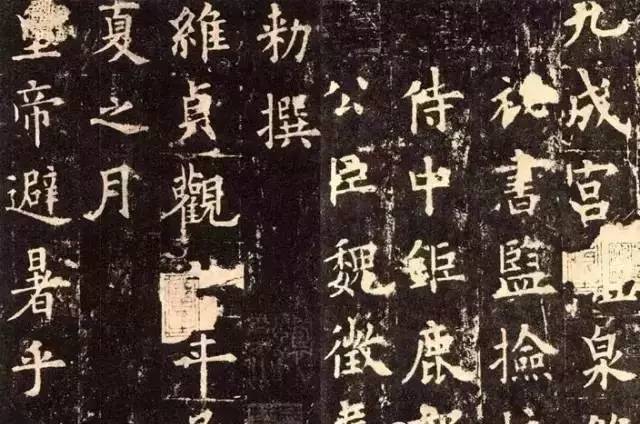 九成宮泉
祕書監撿
侍中鉅鹿郡
公臣魏徵奉
勑撰
維貞觀年
夏之月
皇帝避暑乎